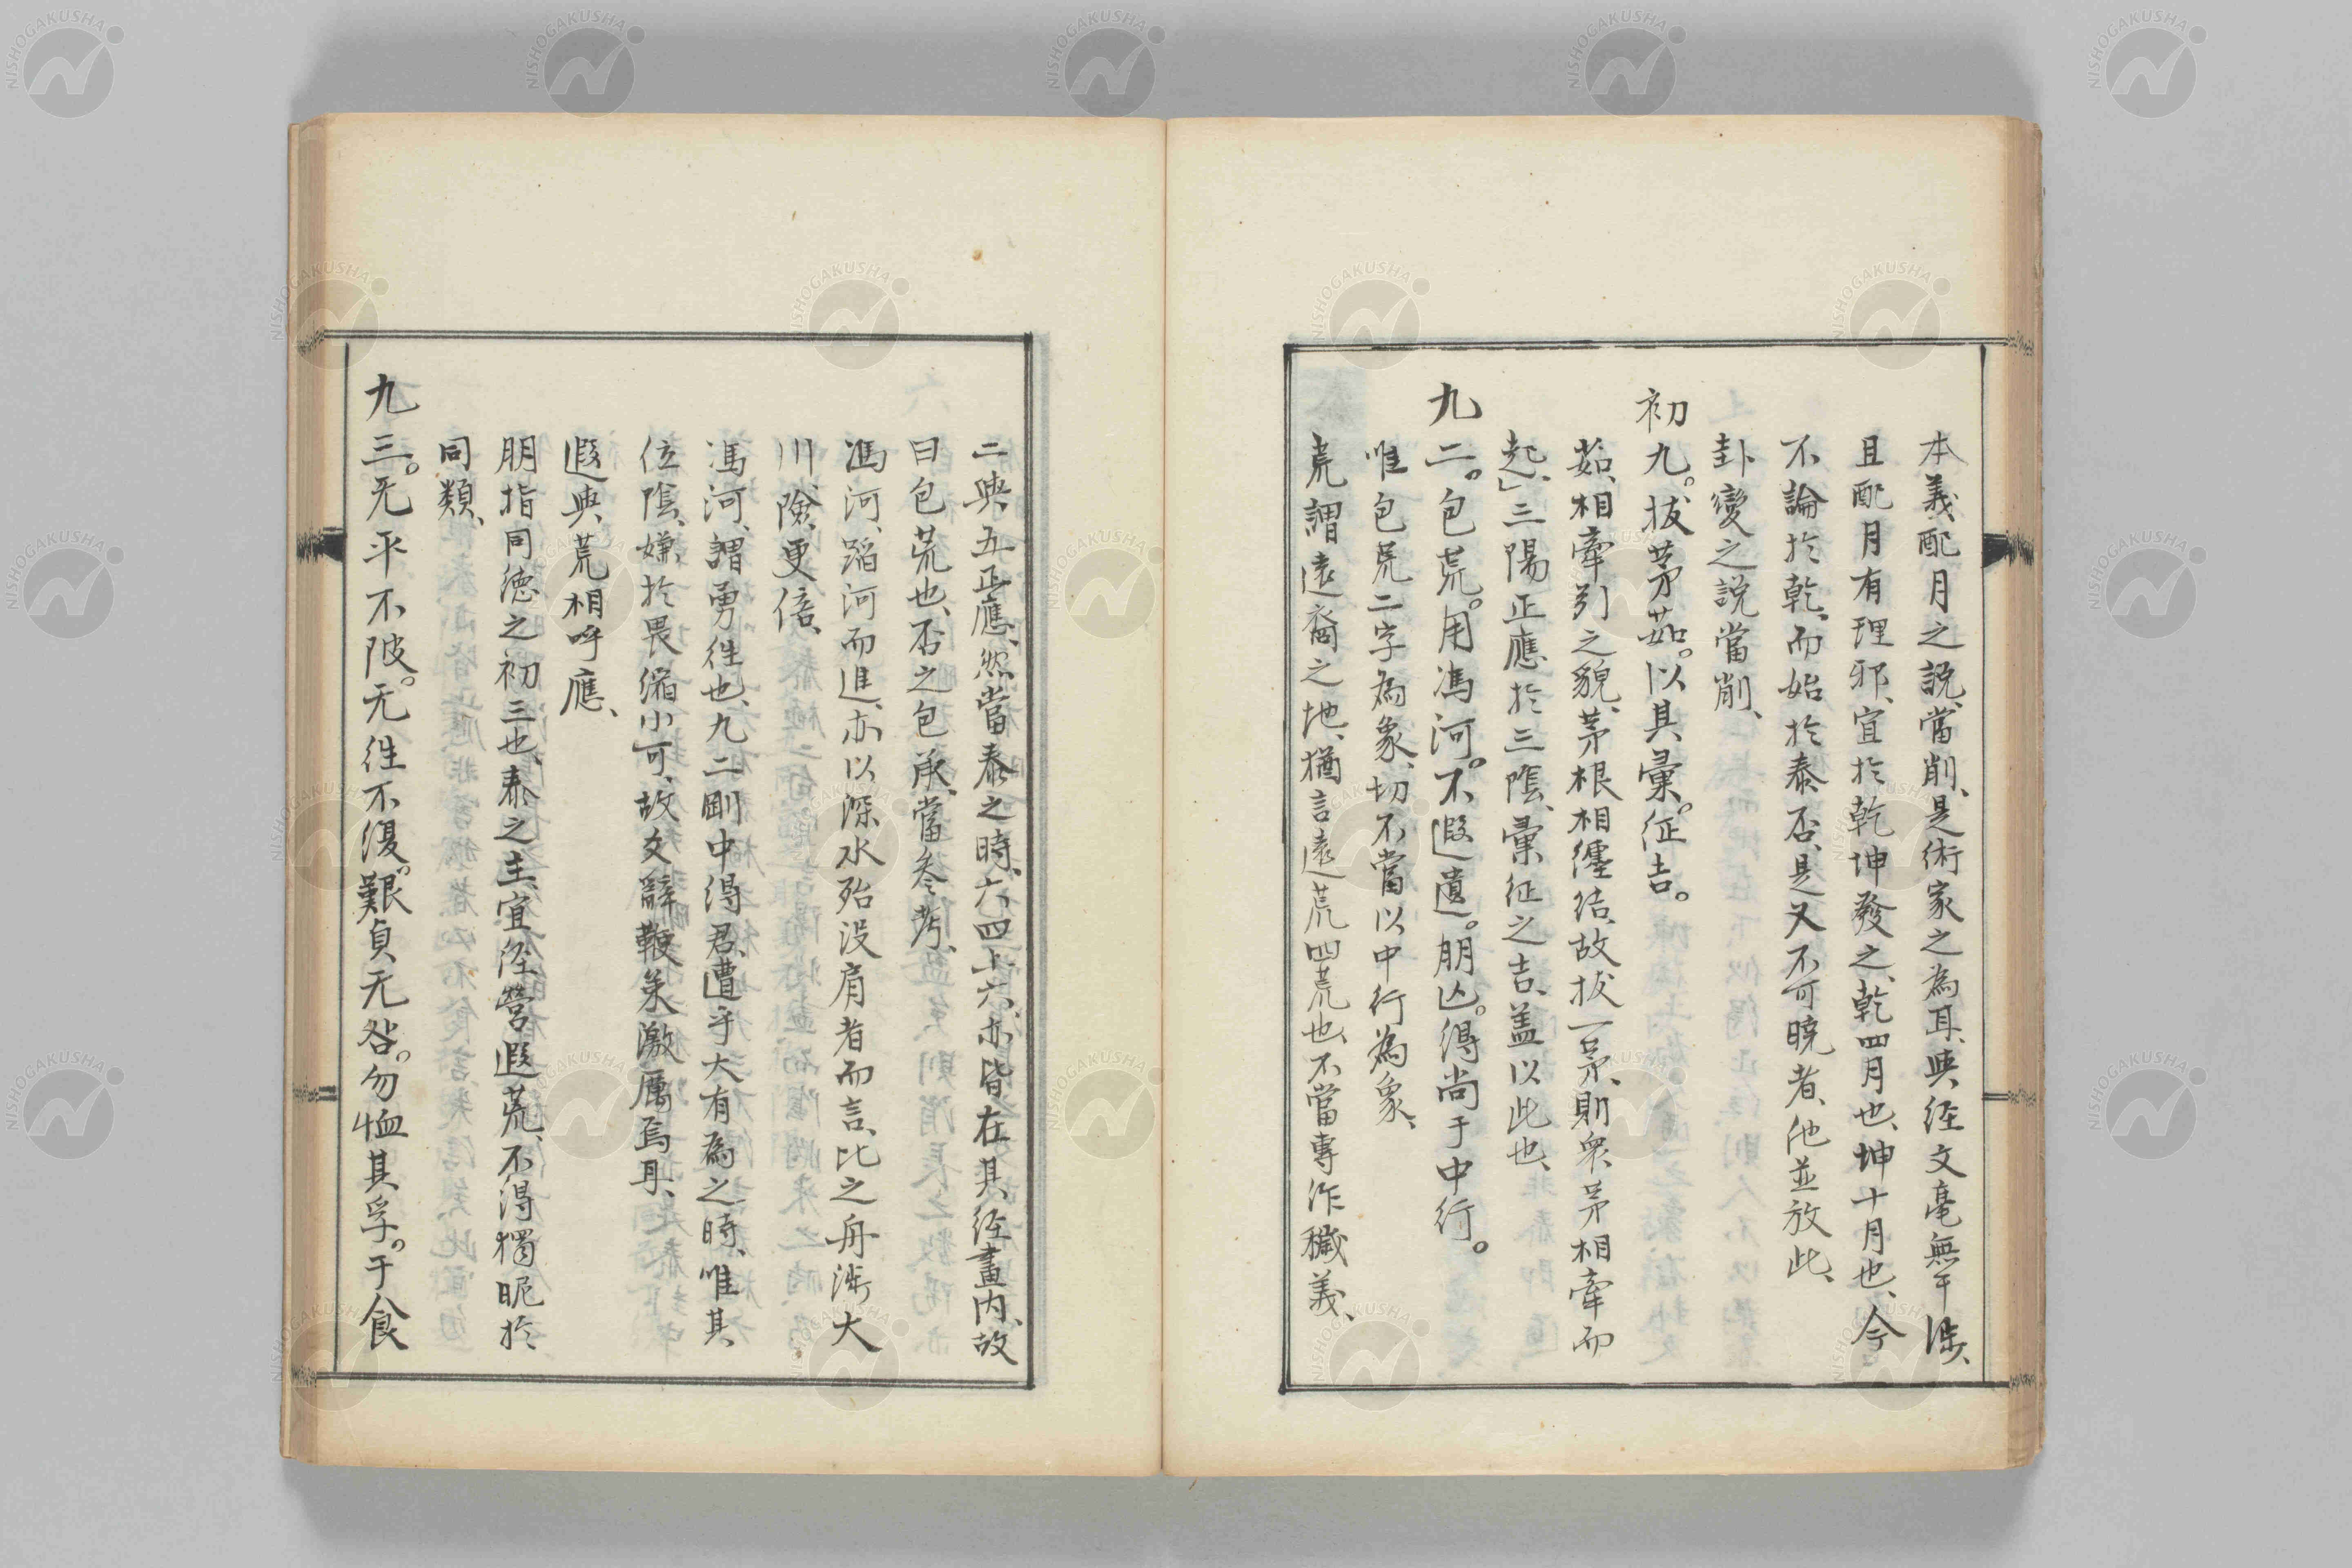 本義配月之說、當削、是術家之為耳、與經文毫無干涉、
且配月有理邪、宜於乾坤發之、乾四月也、坤十月也、今
不論於乾、而始於泰否、是又不可曉者、他並放此、
卦變之說當削、
初九。拔茅茹。以其彙。征吉。
茹、相牽引之貌、茅根相纏結、故拔一茅、則衆茅相牽而
起、」三陽正應於三陰、彙征之吉、盖以此也、
九二。包荒。用馮河。不遐遺。朋亾。得尚于中行。
唯包荒二字為象、切不當以中行為象、
荒謂遠裔之地、猶言遠荒四荒也、不當專作穢義、
二與五正應、然當泰之時、六四上六、亦皆在其經畫内、故
曰包荒也、否之包承、當參考、
馮河、蹈河而進、亦以深水殆没肩者而言、比之舟涉大
川、險更倍、
馮河、謂勇往也、九二剛中得君、遭乎大有為之時、唯其
位陰、嫌於畏縮小可、故爻辭鞭策激厲焉耳、
遐與荒相呼應、
朋指同德之初三也、泰之主、宜經營遐荒、不得獨昵於
同類、
九三。无平不陂。无往不復。艱貞无咎。勿恤其孚。于食